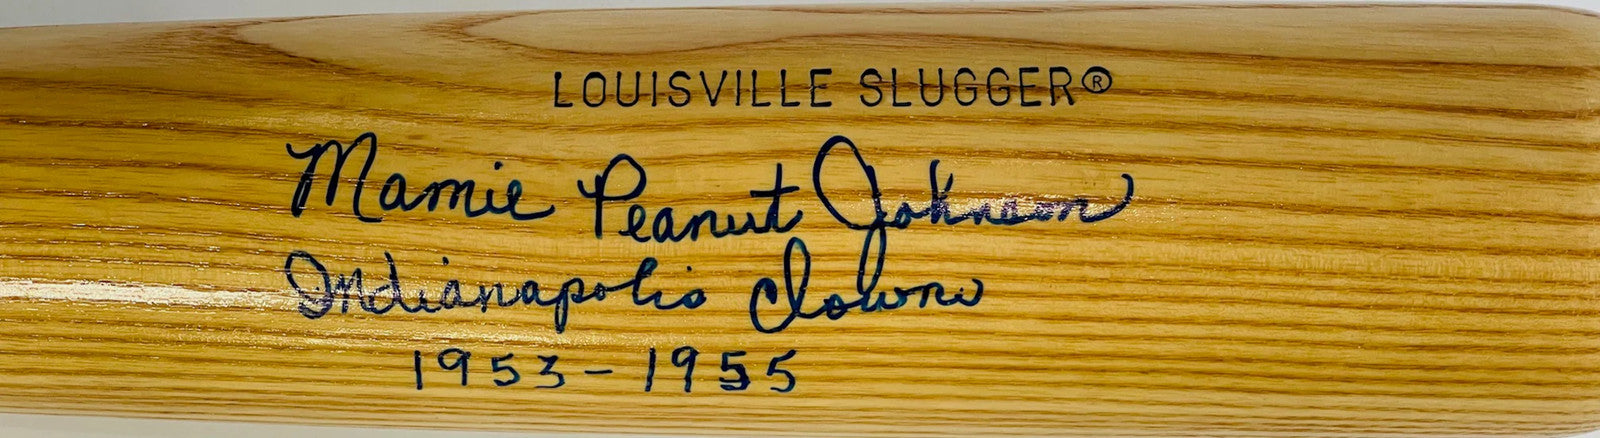 LOUISVILLE SLUGGER®
Mamie Peanut Johnson
Indianapolis Clowns
1953-1955